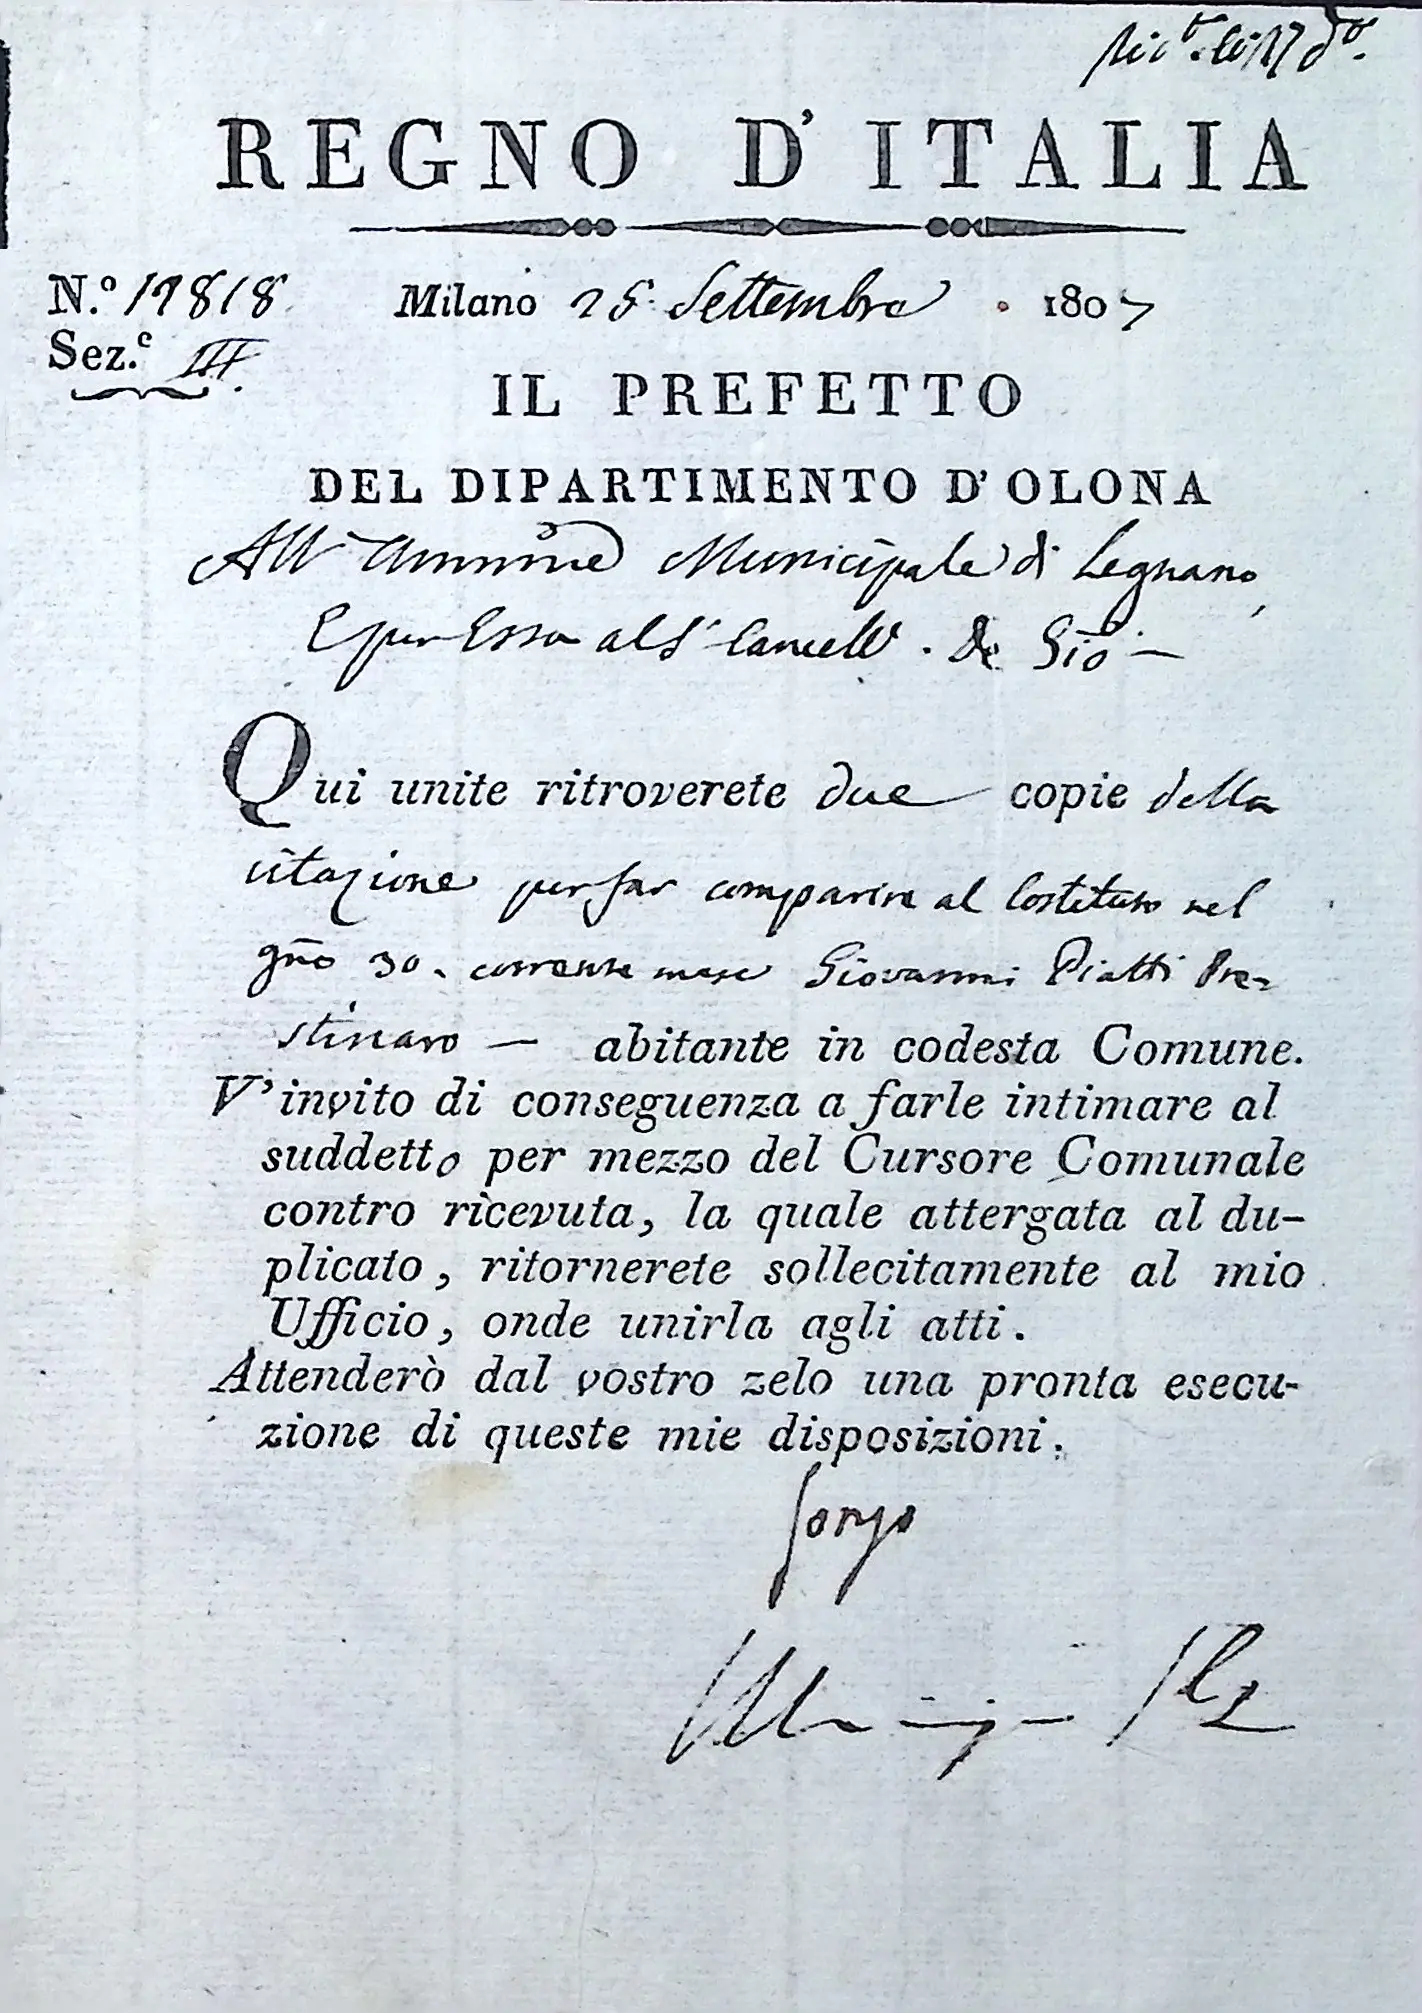 REGNO D'ITALIA
N.º 19818 Milano 25 Settembre 1807
Sez.e III.
IL PREFETTO
DEL DIPARTIMENTO D'OLONA
All' Ammne Municipale di Legnano,
E per Essa al Sr Cancell. De Giò —
Qui unite ritroverete due copie della
citazione per far comparire al Costituto nel
gno 30. corrente mese Giovanni Piatti Pre-
stinaro — abitante in codesta Comune.
V'invito di conseguenza a farle intimare al
suddetto per mezzo del Cursore Comunale
contro ricevuta, la quale attergata al du-
plicato, ritornerete sollecitamente al mio
Ufficio, onde unirla agli atti.
Attenderò dal vostro zelo una pronta esecu-
zione di queste mie disposizioni.